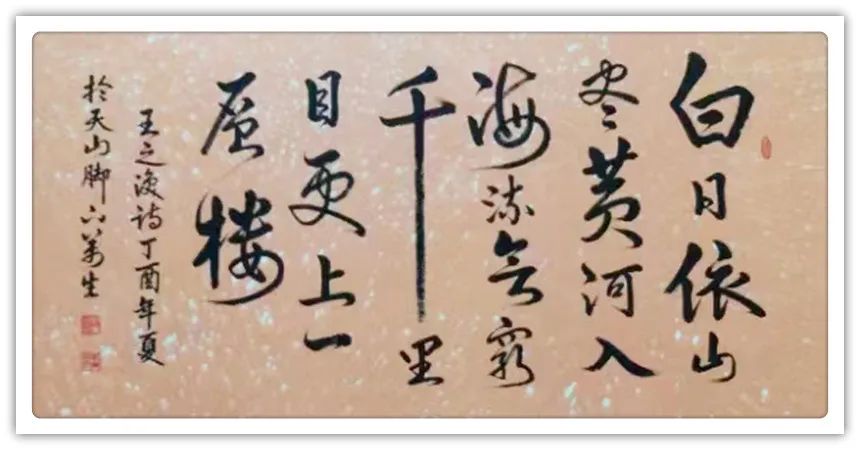 白日依山
尽黄河入
海流欲穷
千里
目更上一
层楼
王之涣诗丁酉年夏
於天山脚下萬生